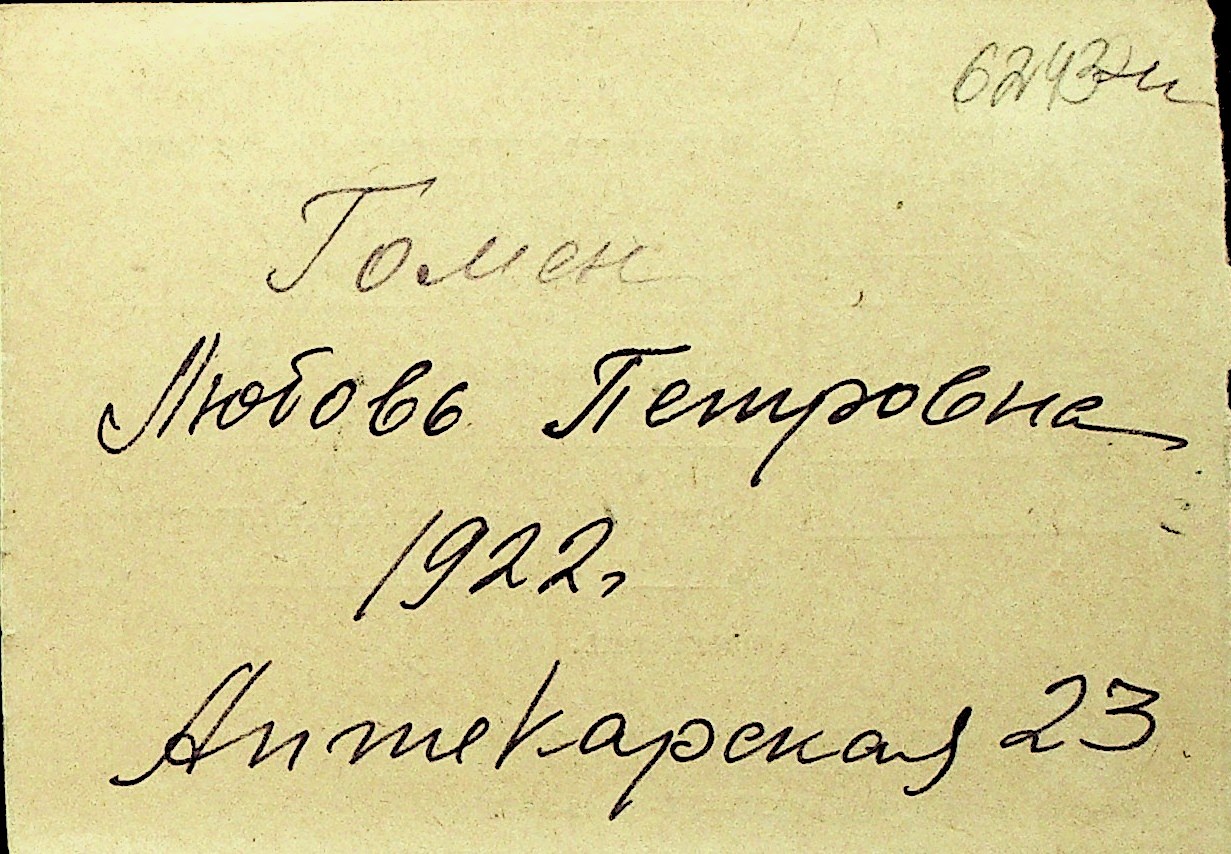 6243
Гомен
Любовь Петровна
1922г
Аптекарская 23